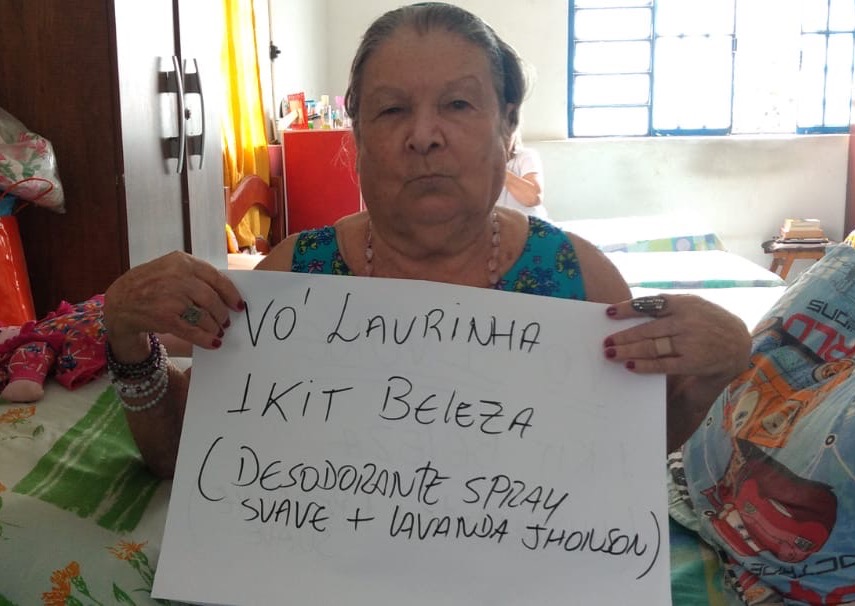 VO' LAURINHA
1 KIT BELEZA
(DESODORANTE SPRAY
SUAVE + LAVANDA JHONSON)